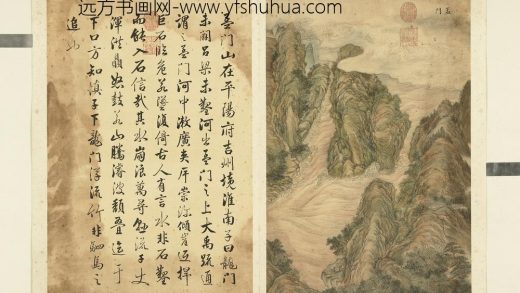 远方书画网-www.yfshuhua.com
孟門
孟門山在平陽府吉州境淮南子曰龍門
未闢呂梁未鑿河出孟門之上大禹疏通
謂之孟門河中漱廣夾岸崇深傾崖返捍
巨石臨危若墜復倚古人有言水非石鑿
而能入石信哉其水崩浪萬尋懸流千丈
渾洪贔怒鼓若山騰濬波頹疊迄于
下口方知慎子下龍門浮流竹非駟馬之
追也